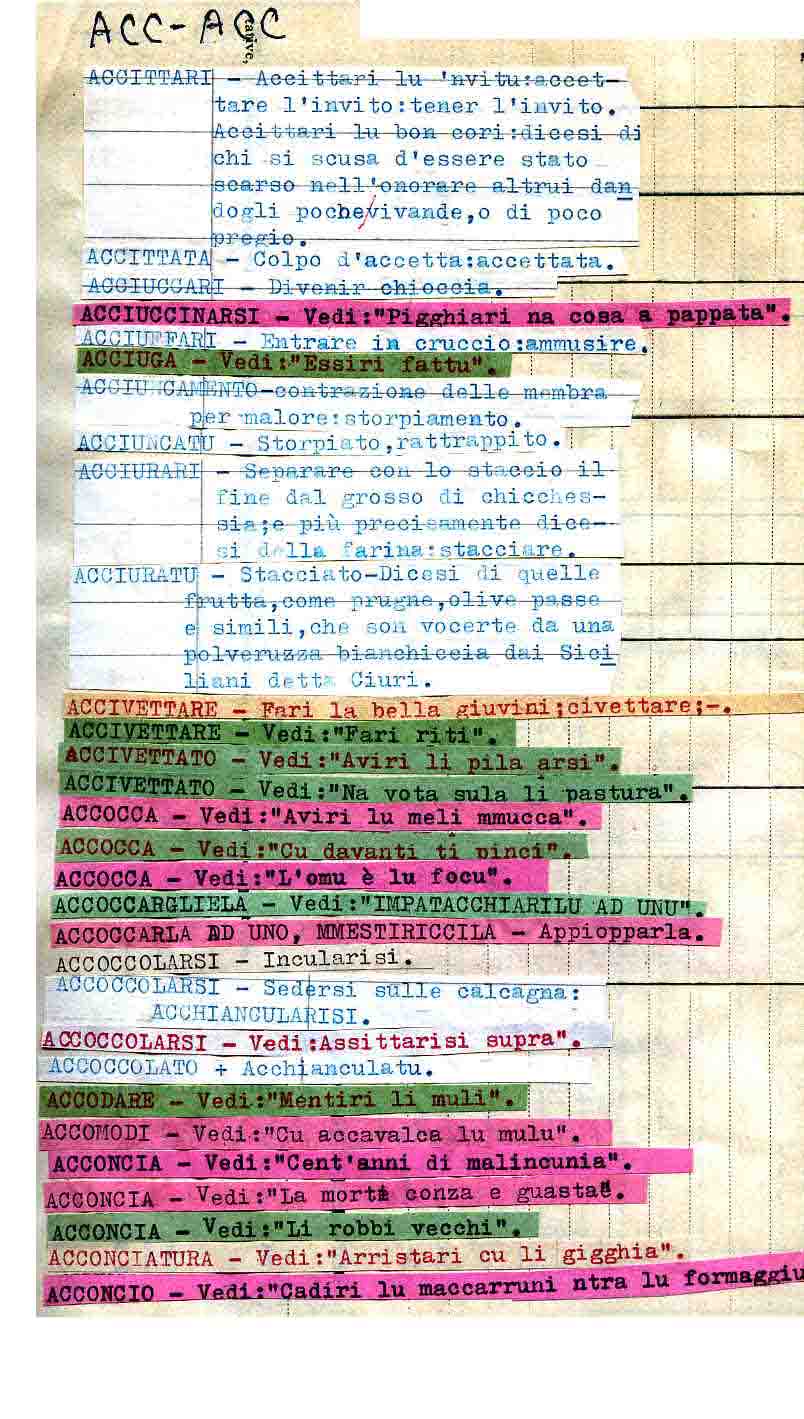 ACC-ACC
tative,
ACCITTARI - Accittari lu 'nvitu:accet-
tare l'invito:tener l'invito.
Accittari lu bon cori:dicesi di
chi si scusa d'essere stato
scarso nell'onorare altrui dan
dogli poche/vivande,o di poco
pregio.
ACCITTATA - Colpo d'accetta:accettata.
ACCIUCCARI - Divenir chioccia.
ACCIUCCINARSI - Vedi:"Pigghiari na cosa a pappata".
ACCIUFFARI - Entrare in cruccio:ammusire.
ACCIUGA - Vedi:"Essiri fattu".
ACCIUNCAMENTO-contrazione delle membra
per malore:storpiamento.
ACCIUNCATU - Storpiato,rattrappito.
ACCIURARI - Separare con lo staccio il
fine dal grosso di chicches-
sia;e più precisamente dice-
si della farina:stacciare.
ACCIURATU - Stacciato-Dicesi di quelle
frutta,come prugne,olive passe
e simili,che son vocerte da una
polveruzza bianchiccia dai Sici
liani detta Ciuri.
ACCIVETTARE - Fari la bella giuvini;civettare;-.
ACCIVETTARE - Vedi:"Fari riti".
ACCIVETTATO - Vedi:"Aviri li pila arsi".
ACCIVETTATO - Vedi:"Na vota sula li pastura".
ACCOCCA - Vedi:"Aviri lu meli mmucca".
ACCOCCA - Vedi:"Cu davanti ti pinci".
ACCOCCA - Vedi:"L'omu è lu focu".
ACCOCCARGLIELA - Vedi:"IMPATACCHIARILU AD UNU".
ACCOCCARLA AD UNO, MMESTIRICCILA - Appiopparla.
ACCOCCOLARSI - Incularisi.
ACCOCCOLARSI - Sedersi sulle calcagna:
ACCHIANCULARISI.
ACCOCCOLARSI - Vedi:Assittarisi supra".
ACCOCCOLATO + Acchianculatu.
ACCODARE - Vedi:"Mentiri li muli".
ACCOMODI - Vedi:"Cu accavalca lu mulu".
ACCONCIA - Vedi:"Cent'anni di malincunia".
ACCONCIA - Vedi:"La morti conza e guasta".
ACCONCIA - Vedi:"Li robbi vecchi".
ACCONCIATURA - Vedi:"Arristari cu li gigghia".
ACCONCIO - Vedi:"Cadiri lu maccarruni ntra lu formaggiu